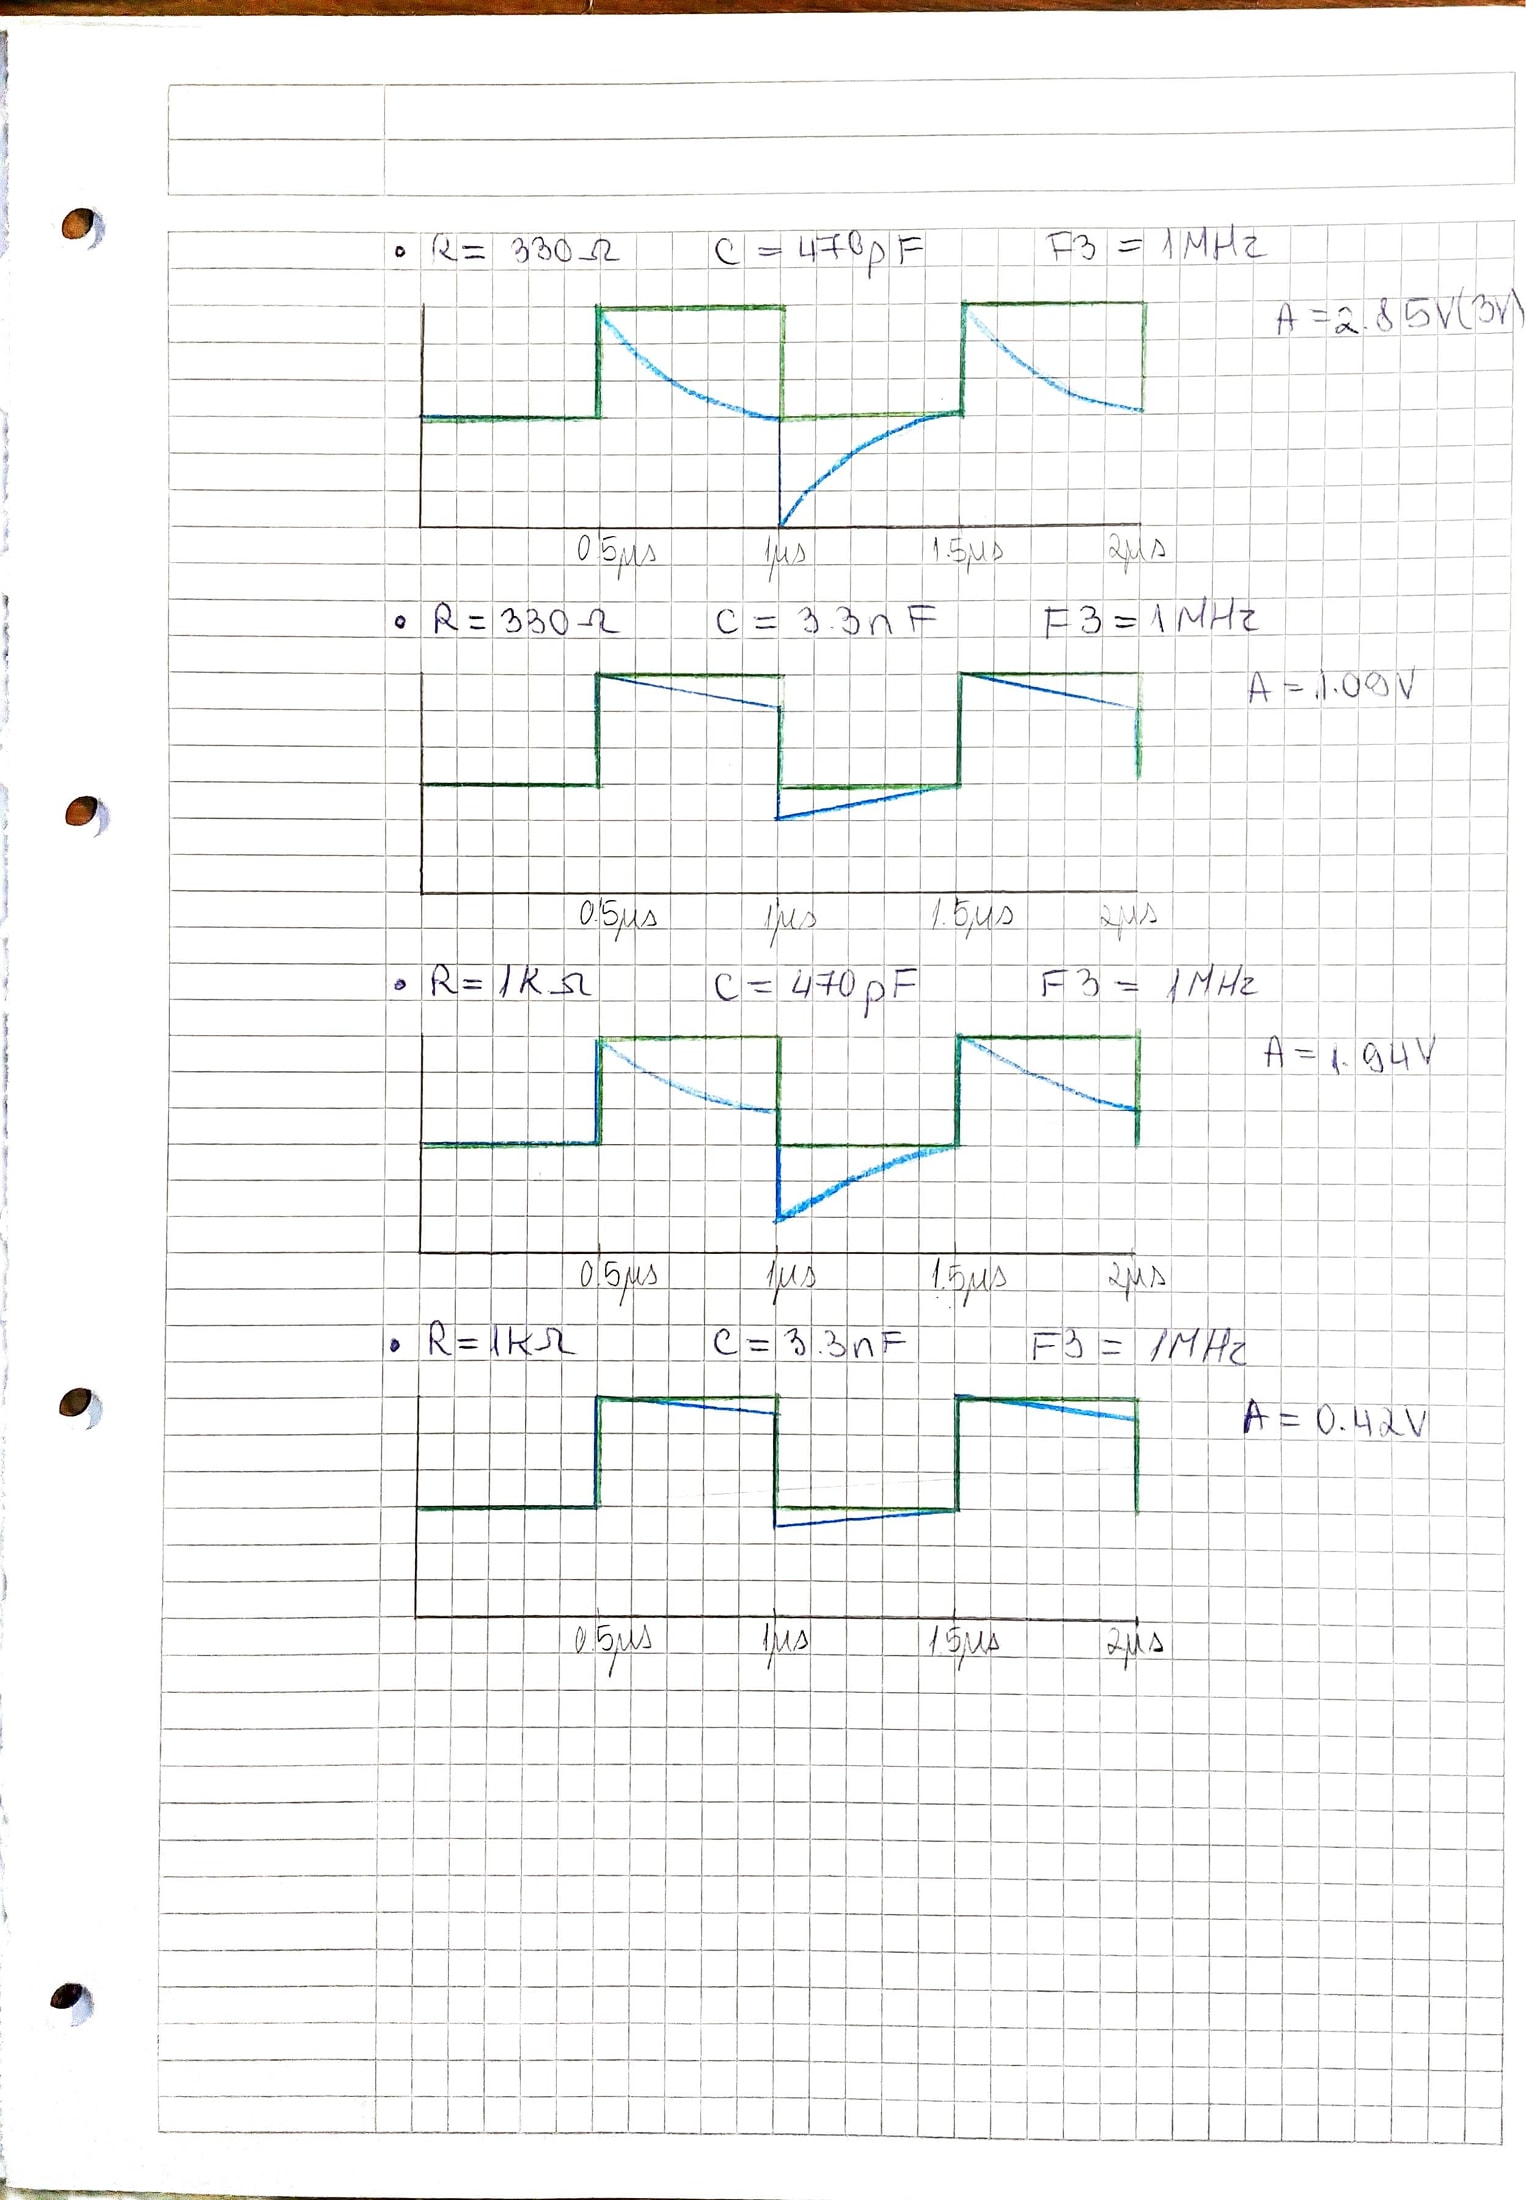 • R = 330Ω C = 470pF F3 = 1MHz
A = 2.85V(3V)
0.5μs 1μs 1.5μs 2μs
• R = 330Ω C = 3.3nF F3 = 1MHz
A = 1.09V
0.5μs 1μs 1.5μs 2μs
• R = 1KΩ C = 470pF F3 = 1MHz
A = 1.94V
0.5μs 1μs 1.5μs 2μs
• R = 1KΩ C = 3.3nF F3 = 1MHz
A = 0.42V
0.5μs 1μs 1.5μs 2μs